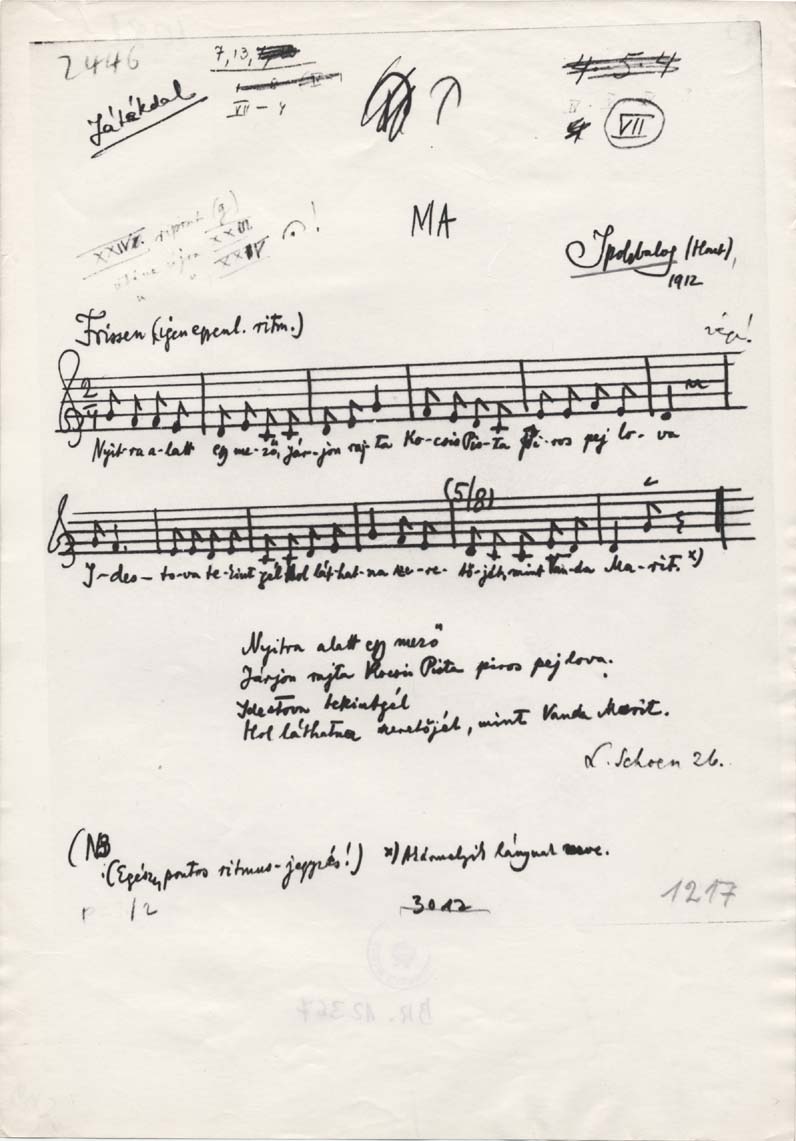 2446
7, 13,
Játékdal
VII – 4
4. 5. 4
VII
MA
Ipolybalog (Hont),
1912
Frissen (igen egyenl. ritm.)
2/4
Nyit-ra a-latt egy me-ző, Jár-jon raj-ta Ko-csis Pis-ta pi-ros pej lo-va
(5/8)
I-des-to-va te-kint-gél Hol lát-hat-na sze-re-tő-jét, mint Van-da Ma-rit. x)
Nyitra alatt egy mező
Járjon rajta Kocsis Pista piros pej lova.
Idestova tekintgél
Hol láthatna szeretőjét, mint Vanda Marit.
L. Schoen 26.
(NB
(Egészen pontos ritmus-jegyzés!) x) Akármelyik lánynak neve.
/2
3012
1217
BR. 12367